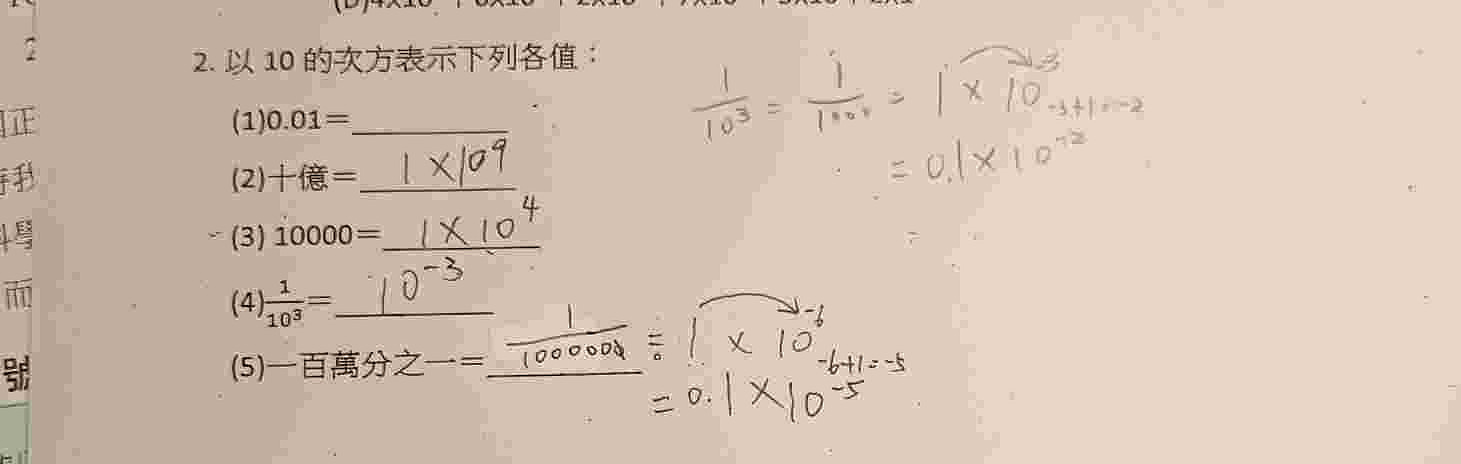 2. 以 10 的次方表示下列各值：
(1)0.01=
(2)十億= 1×10⁹
(3) 10000= 1×10⁴
(4) 1/10³ = 10⁻³
(5)一百萬分之一= 1/1000000 = 1 × 10⁻⁶
-6+1=-5
= 0.1×10⁻⁵
1/10³ = 1/1000 = 1 × 10⁻³
-3+1=-2
= 0.1×10⁻²
號